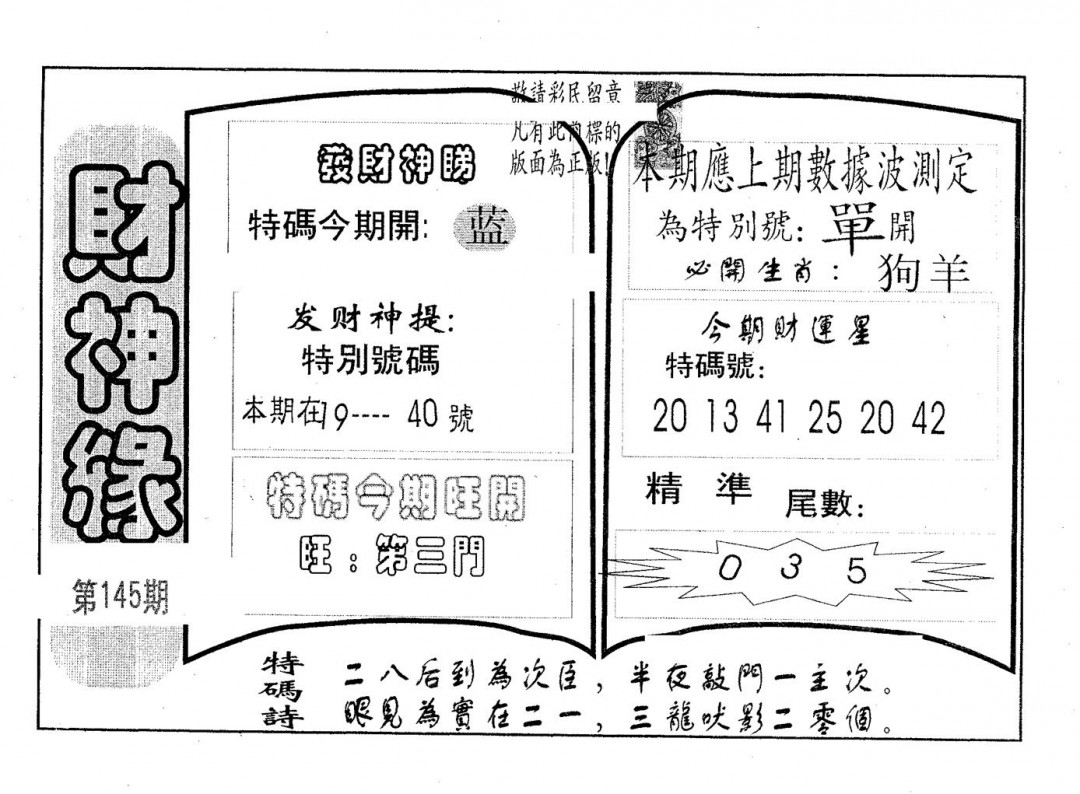 財神緣
第145期
敬請彩民留意
凡有此商標的
版面為正版!
發財神睇
特碼今期開: 蓝
发财神提:
特別號碼
本期在19---- 40號
特碼今期旺開
旺：第三門
本期應上期數據波測定
為特別號: 單開
必開生肖: 狗羊
今期財運星
特碼號:
20 13 41 25 20 42
精準 尾數:
0 3 5
特碼詩
二八后到為次臣，半夜敲門一主次。
眼見為實在二一，三龍吠影二零個。